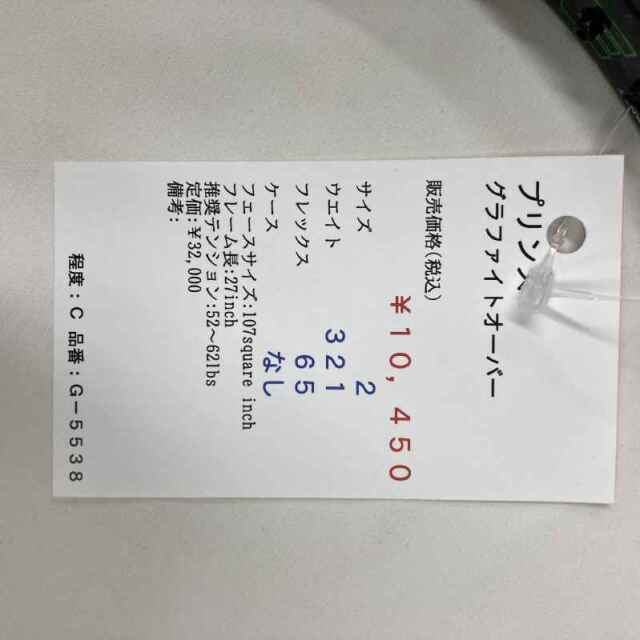 プリンス
グラファイトオーバー
販売価格(税込)
￥10,450
サイズ 2
ウエイト 321
フレックス 65
ケース なし
フェースサイズ:107square inch
フレーム長:27inch
推奨テンション:52～62lbs
定価:￥32,000
備考:
程度:C 品番:G-5538